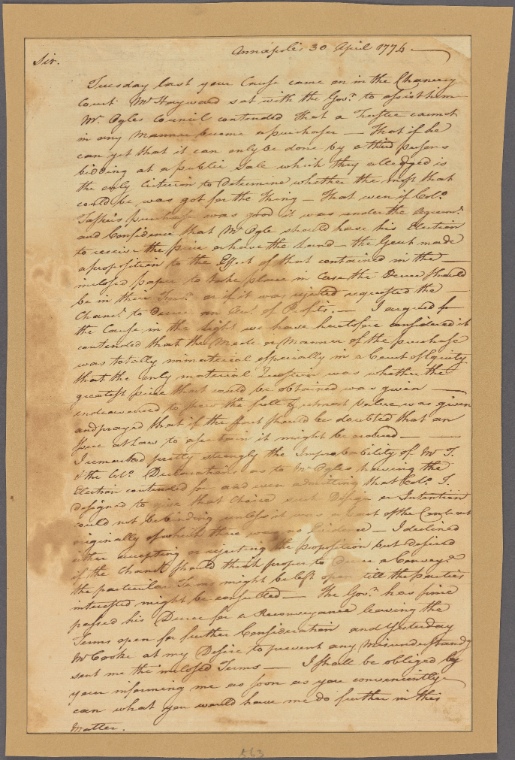 Annapolis 30 April 1774
Sir.
Tuesday last your Cause came on in the Chancery
Court Mr Hayward sat with the Govr. to assist him
Mr Ogles Council contended that a Trustee cannot
in any Manner become a purchaser — That if he
can yet that it can only be done by a third persons
bidding at a public Sale which they alledged is
the only Criterion to determine whether the most that
could be, was got for the Thing — That even if Colo.
Taskers purchase was good it was under the Agreemt.
and Confidence that Mr Ogle should have his Election
to receive the price or have the Land — the Govr made
a proposition to the Effect of that contained in the
inclosed paper to take place in Case the Decree should
be in their and if it was rejected requested the
Chancr. to Decree an of Profits. — I argued for
the Cause in the Light we have heretofore considered it
contended that the Mode or Manner of the purchase
was totally immaterial especially in a Court of Equity
that the only material Question was whether the
greatest price that could be obtained was given —
endeavoured to shew the full & utmost value was given
and prayed that if the Court should be doubtful that an
Issue at Law to ascertain it might be ordered —
I remarked pretty strongly the Improbability of Mr T.
& the Colo. Declarations as to Mr Ogles having the
Election contended for and even admitting that Colo. T.
designed to give that Choice such Design or Intention
could not be binding unless it was part of the Contract
originally of which there was no Evidence — I declined
either accepting or rejecting the proposition but desired
if the Chancr. should think proper to Decree a Conveya.
the particular Terms might be left open till the parties
interested might be consulted — The Govr. has since
passed his Decree for a Reconveyance leaving the
Terms open for further Consideration and yesterday
Mr Cooke at my Desire to prevent any Misunderstandg
sent me the inclosed Terms — I shall be obliged by
your informing me as soon as you conveniently
can what you would have me do further in this
Matter.
563